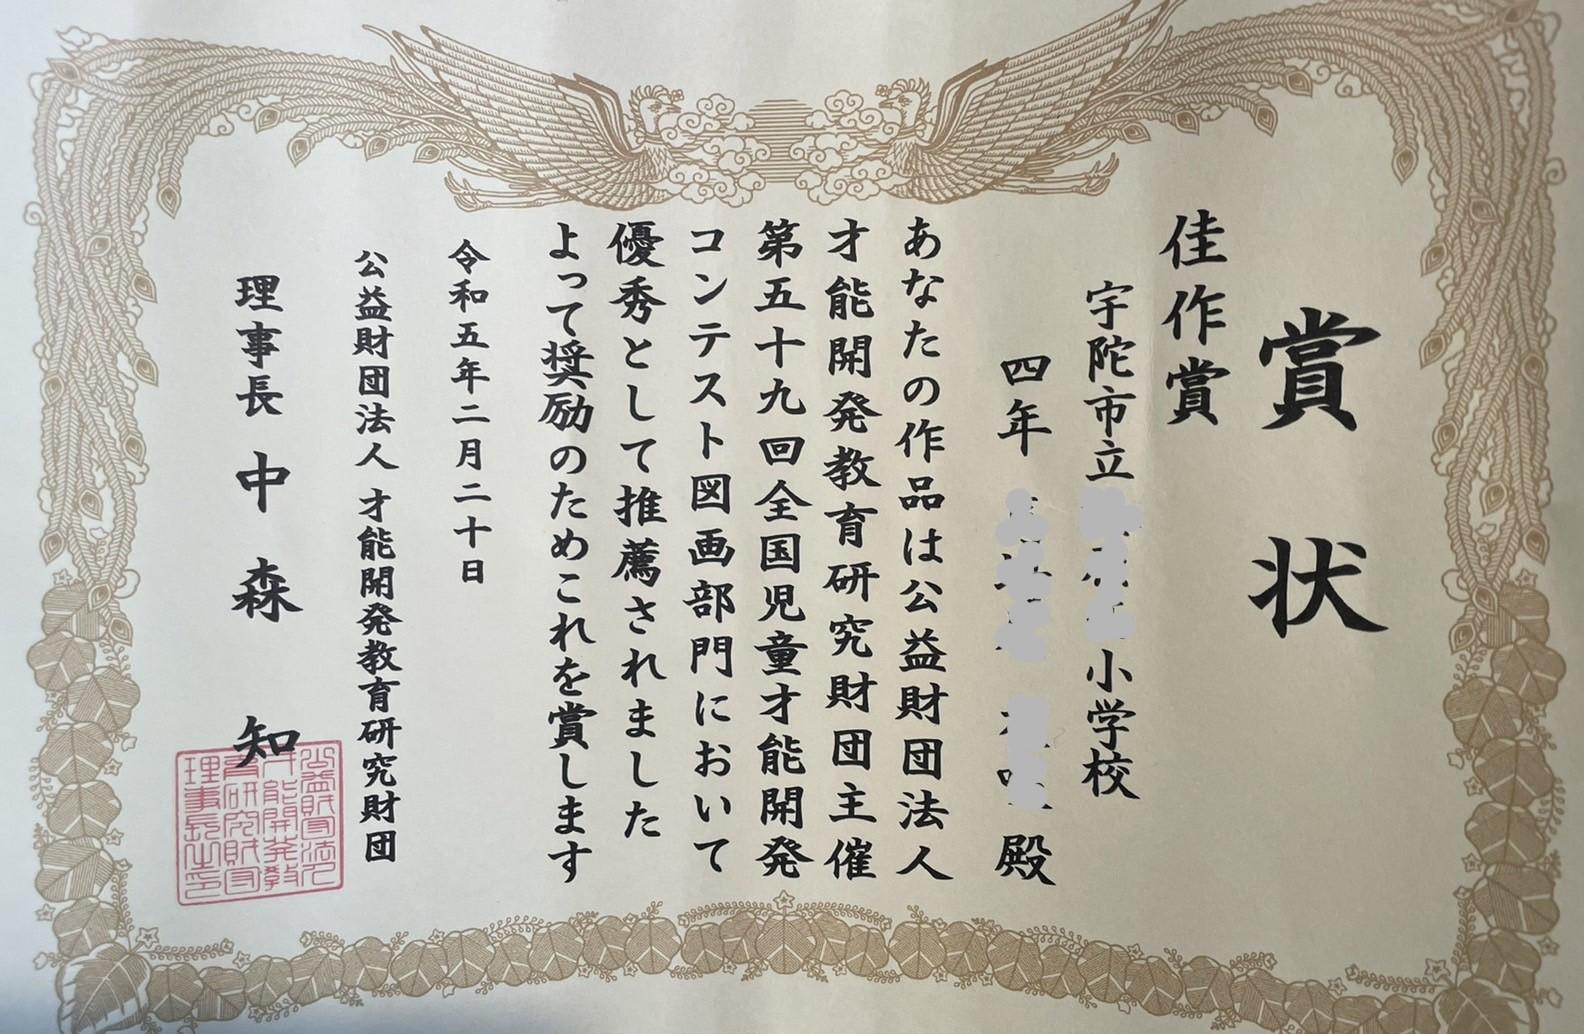 賞状
佳作賞
宇陀市立 小学校
四年 殿
あなたの作品は公益財団法人
才能開発教育研究財団主催
第五十九回全国児童才能開発
コンテスト図画部門において
優秀として推薦されました
よって奨励のためこれを賞します
令和五年二月二十日
公益財団法人 才能開発教育研究財団
理事長 中森 知
公益財団法人
才能開発教
育研究財団
理事長之印